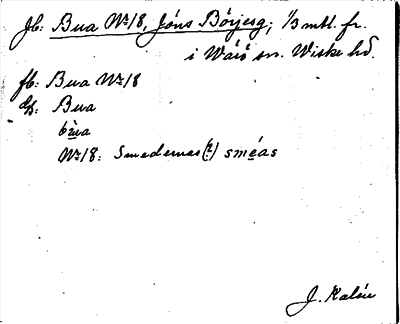 Jb: Bua No 18, Jöns Börjesg; 1/3 mtl. fr.
i Värö sn. Wiske hd.
fb: Bua No 18
Uf: Bua
bɯ̀a
No 18: Smedernas(?) sméas
J. Kalén